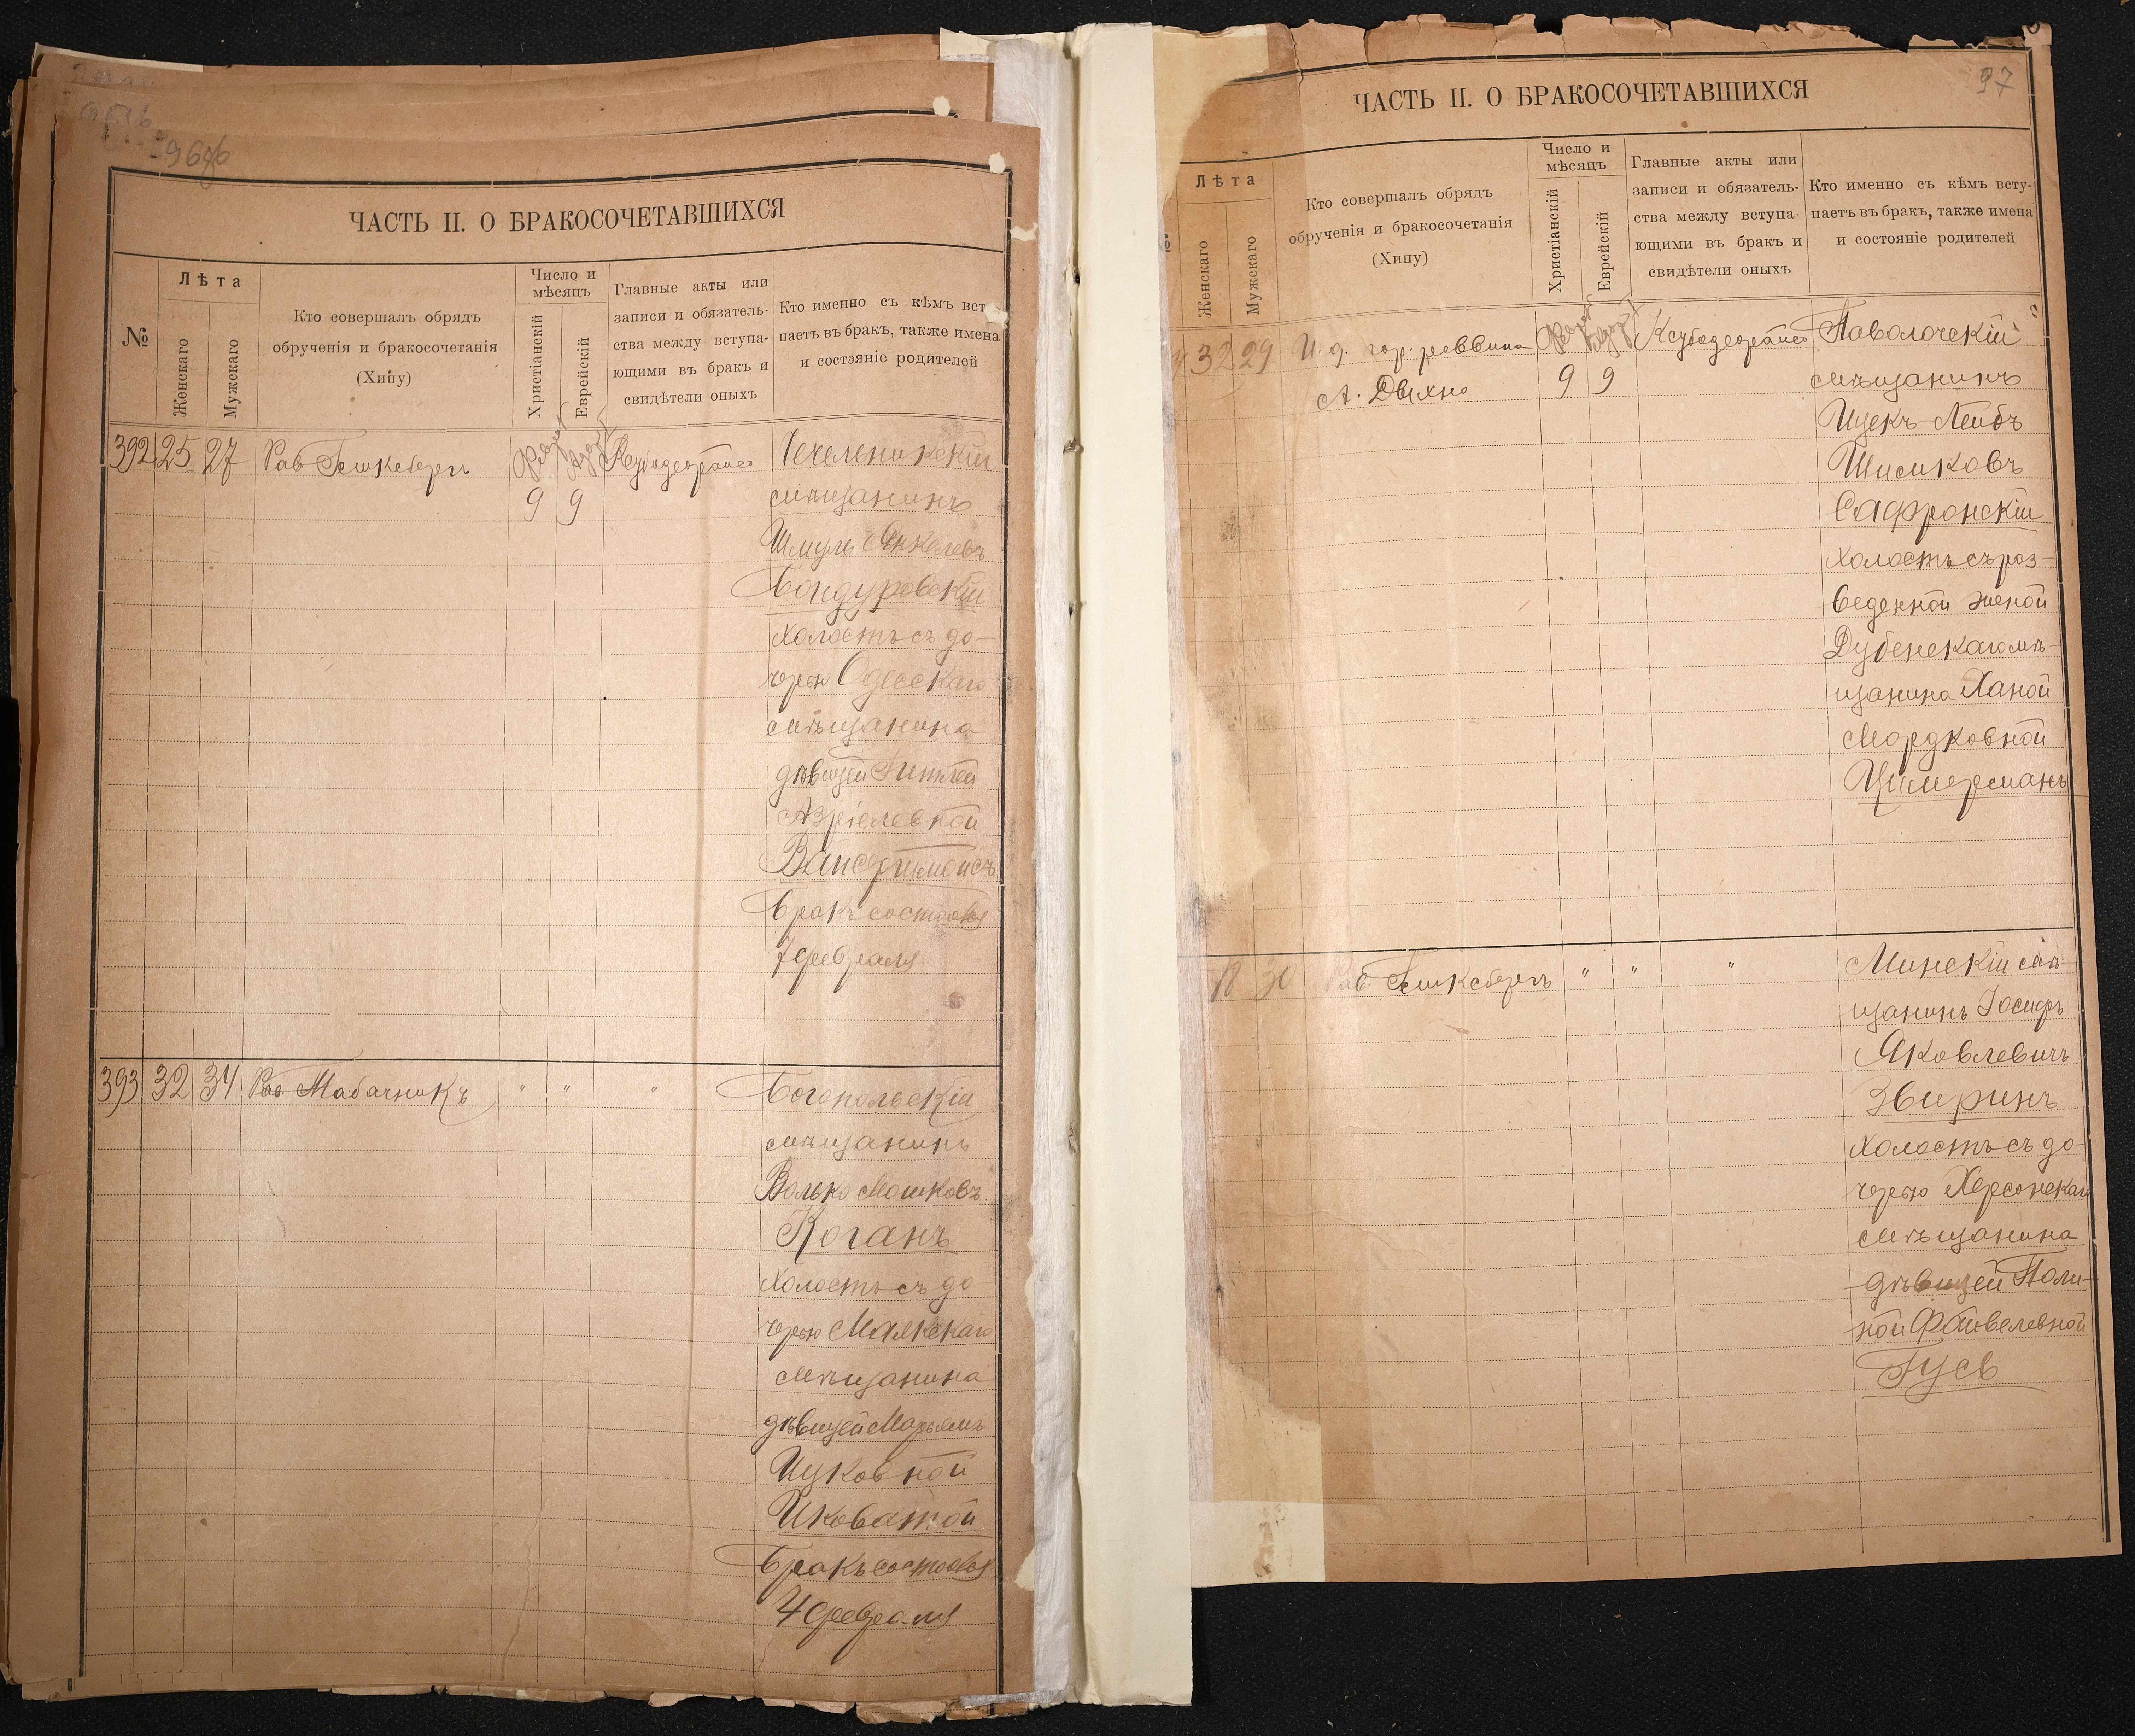 96об
ЧАСТЬ II. О БРАКОСОЧЕТАВШИХСЯ
№
Лѣта
Женскаго
Мужскаго
Кто совершалъ обрядъ
обрученія и бракосочетанія
(Хипу)
Число и
мѣсяцъ
Христіанскій
Еврейскій
Главные акты или
записи и обязатель-
ства между вступа-
ющими въ бракъ и
свидѣтели оныхъ
Кто именно съ кѣмъ вст
паетъ въ бракъ, также имена
и состояніе родителей
392 25 27 Рав Чечельникскій
9 9 мѣщанинъ
Шмуль Янкелевъ
Бондуровскій
холостъ съ до-
черью Одесскаго
мѣщанина
дѣвицей Гитлей
Азріелевной
Бракъ состоялся
7 февраля
393 32 34 Рав. Табачникъ " " " Богопольскій
мѣщанинъ
Волько Мошковъ
Коганъ
холостъ съ до
черью
мѣщанина
дѣвицей Марьямъ
Ицковной
Бракъ состоялся
4 февраля
97
ЧАСТЬ II. О БРАКОСОЧЕТАВШИХСЯ
Лѣта
Женскаго
Мужскаго
Кто совершалъ обрядъ
обрученія и бракосочетанія
(Хипу)
Число и
мѣсяцъ
Христіанскій
Еврейскій
Главные акты или
записи и обязатель-
ства между вступа-
ющими въ бракъ и
свидѣтели оныхъ
Кто именно съ кѣмъ всту-
паетъ въ бракъ, также имена
и состояніе родителей
32 29 И. д. гор. раввина Паволочскій
А. 9 9 мѣщанинъ
Ицекъ-Лейбъ
Сафронскій
холостъ съ раз-
веденной женой
Дубенскаго мѣ-
щанина Ханой
Мордковной
Цимерманъ
30 Рав. " " " Минскій мѣ-
щанинъ Іосифъ
Яковлевичъ
Звиринъ
холостъ съ до-
черью Херсонскаго
мѣщанина
дѣвицей Поли-
ной Файвелевной
Гусъ